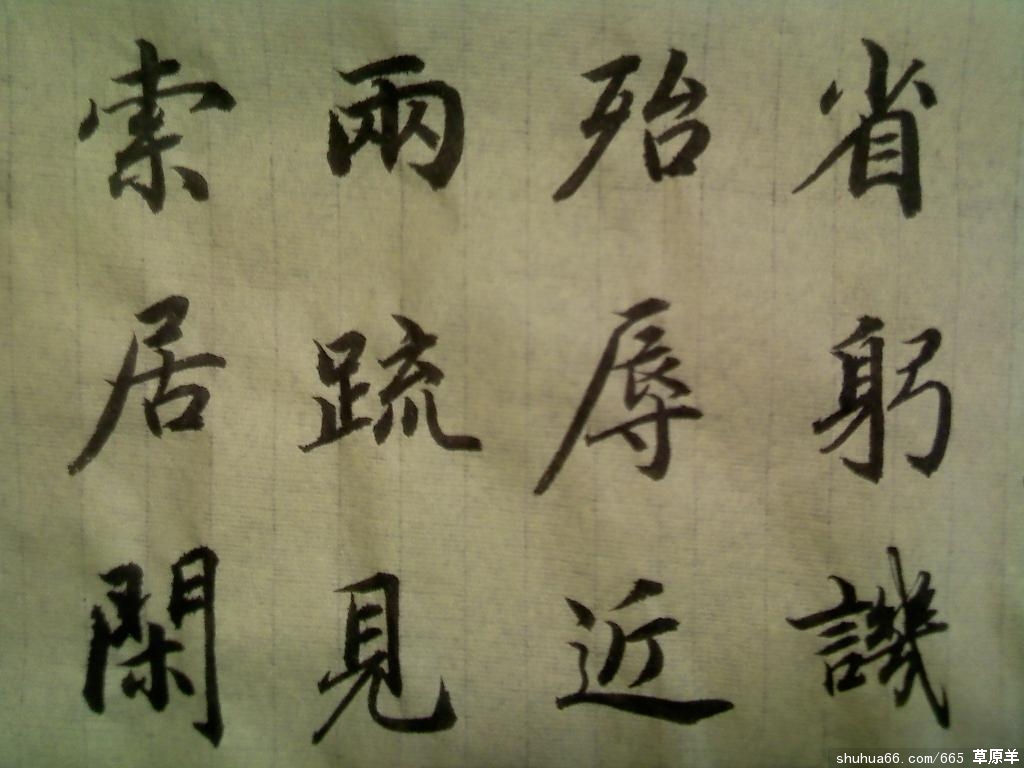 省躬譏
殆辱近
兩疏見
索居閑
shuhua66.com/665 草原羊